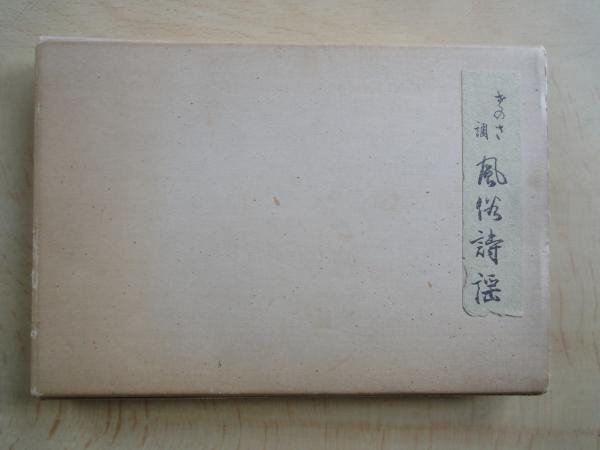 きのさ調
風俗詩謡